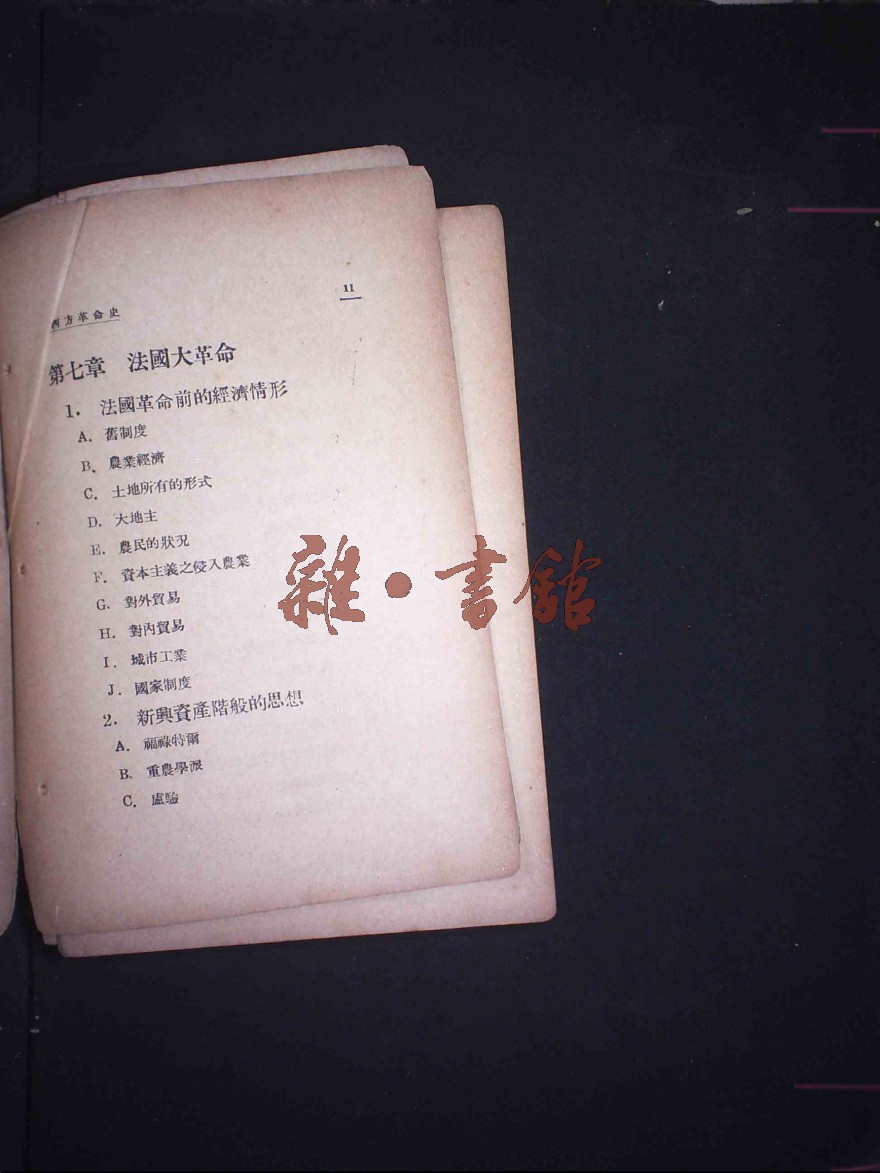 西方革命史
11
第七章 法國大革命
1. 法國革命前的經濟情形
A. 舊制度
B. 農業經濟
C. 土地所有的形式
D. 大地主
E. 農民的狀况
F. 資本主義之侵入農業
G. 對外貿易
H. 對內貿易
I. 城市工業
J. 國家制度
2. 新興資產階般的思想
A. 福祿特爾
B. 重農學派
C. 盧騷
雜·書館